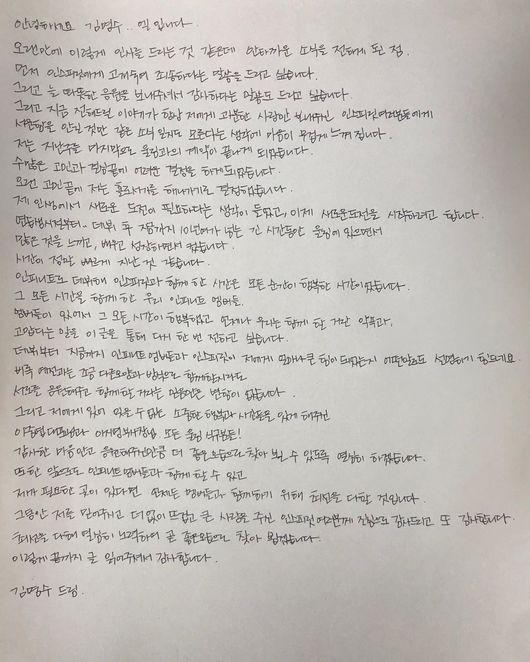 안녕하세요 김명수.. 엘 입니다.
오랜만에 이렇게 인사를 드리는 것 같은데 안타까운 소식을 전하게 된 점.
먼저 인스피릿에게 고개숙여 죄송하다는 말씀을 드리고 싶습니다.
그리고 늘 따뜻한 응원을 보내주셔서 감사하다는 말씀도 드리고 싶습니다.
그리고 지금 전해드릴 이야기가 항상 저에게 과분한 사랑만 보내주신 인스피릿여러분들에게
서운함을 안길 것만 같은 소식 일지도 모른다는 생각에 마음이 무겁게 느껴집니다.
저는 지난주를 마지막으로 울림과의 계약이 끝나게 되었습니다.
수많은 고민과 결정끝에 어려운 결정을 하게되었습니다.
오랜 고민끝에 저는 홀로서기를 해나가기로 결정했습니다.
제 인생에서 새로운 도전이 필요하다는 생각이 들었고, 이제 새로운도전을 시작하려고 합니다.
연습생시절부터.. 데뷔 후 지금까지 10년여가 넘는 긴 시간동안 울림에 있으면서
많은 것을 느끼고, 배우고 성장하면서 컸습니다.
시간이 정말 빠르게 지난 것 같습니다.
인피니트로 데뷔해 인스피릿과 함께 한 시간은 모든 순간이 행복한 시간이었습니다.
그 모든 시간을 함께 한 우리 인피니트 멤버들.
멤버들이 있어서 그 모든 시간이 행복했고 언제나 우리는 함께 할 거란 약속과,
고맙다는 말을 이 글을 통해 다시 한 번 전하고 싶습니다.
데뷔부터 지금까지 인피니트 멤버들과 인스피릿이 저에게 얼마나 큰 힘이 되었는지 어떤말로도 설명하기 힘드네요.
비록 예전과는 조금 다른모양과 방식으로 함께할지라도
서로를 응원해주고 함께 할 거라는 믿음만은 변함이 없습니다.
그리고 저에게 있어 잊을 수 없는 소중한 행복과 시간들을 있게 해주신
이중엽 대표님과 이시연 부사장님, 모든 울림 식구분들!
감사한 마음안고 응원해주신만큼 더 좋은 모습으로 찾아 뵐 수 있도록 열심히 하겠습니다.
또한 앞으로도 인피니트 멤버들과 함께 할 수 있고
제가 필요한 곳이 있다면 언제든 멤버들과 함께하기 위해 최선을 다할 것입니다.
그동안 저를 믿어주시고 더 없이 뜨겁고 큰 사랑을 주신 인스피릿 여러분께 진심으로 감사드리고 또 감사합니다.
최선을 다하며 열심히 노력하여 곧 좋은모습으로 찾아 뵙겠습니다.
이렇게 끝까지 글 읽어주셔서 감사합니다.
김명수 드림.